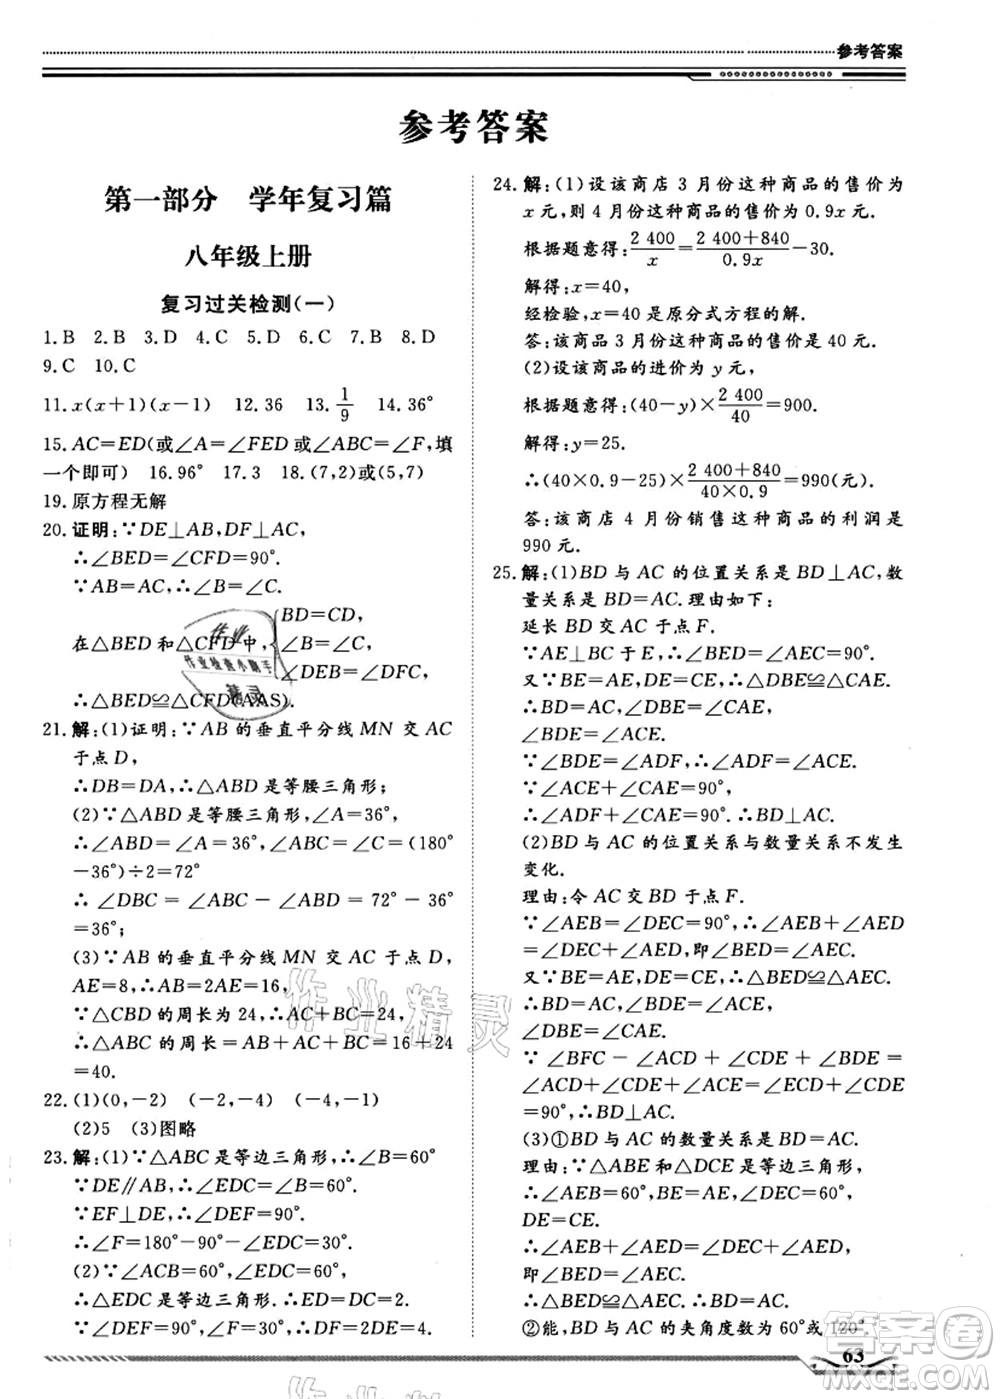 参考答案
参考答案
第一部分 学年复习篇
八年级上册
复习过关检测(一)
1.B 2.B 3.D 4.C 5.C 6.B 7.D 8.D
9.C 10.C
11.x(x+1)(x-1) 12.36 13.1/9 14.36°
15.AC=ED(或∠A=∠FED或∠ABC=∠F,填
一个即可) 16.96° 17.3 18.(7,2)或(5,7)
19.原方程无解
20.证明:∵DE⊥AB,DF⊥AC,
∴∠BED=∠CFD=90°.
∵AB=AC,∴∠B=∠C,
在△BED和△CFD中,{BD=CD,
∠B=∠C,
∠DEB=∠DFC,
∴△BED≌△CFD(AAS).
21.解:(1)证明:∵AB的垂直平分线MN交AC
于点D,
∴DB=DA,∴△ABD是等腰三角形;
(2)∵△ABD是等腰三角形,∠A=36°,
∴∠ABD=∠A=36°,∠ABC=∠C=(180°
-36°)÷2=72°
∴∠DBC=∠ABC-∠ABD=72°-36°
=36°;
(3)∵AB的垂直平分线MN交AC于点D,
AE=8,∴AB=2AE=16,
∵△CBD的周长为24,∴AC+BC=24,
∴△ABC的周长=AB+AC+BC=16+24
=40.
22.(1)(0,-2) (-2,-4) (-4,-1)
(2)5 (3)图略
23.解:(1)∵△ABC是等边三角形,∴∠B=60°
∵DE∥AB,∴∠EDC=∠B=60°.
∵EF⊥DE,∴∠DEF=90°.
∴∠F=180°-90°-∠EDC=30°;
(2)∵∠ACB=60°,∠EDC=60°,
∴△EDC是等边三角形.∴ED=DC=2.
∵∠DEF=90°,∠F=30°,∴DF=2DE=4.
24.解:(1)设该商店3月份这种商品的售价为
x元,则4月份这种商品的售价为0.9x元.
根据题意得:2 400/x=(2 400+840)/0.9x-30.
解得:x=40,
经检验,x=40是原分式方程的解.
答:该商品3月份这种商品的售价是40元.
(2)设该商品的进价为y元,
根据题意得:(40-y)×2 400/40=900.
解得:y=25.
∴(40×0.9-25)×(2 400+840)/(40×0.9)=990(元).
答:该商店4月份销售这种商品的利润是
990元.
25.解:(1)BD与AC的位置关系是BD⊥AC,数
量关系是BD=AC.理由如下:
延长BD交AC于点F.
∵AE⊥BC于E,∴∠BED=∠AEC=90°.
又∵BE=AE,DE=EC,∴△DBE≌△CAE,
∴BD=AC,∠DBE=∠CAE,
∠BDE=∠ACE.
∵∠BDE=∠ADF,∴∠ADF=∠ACE.
∵∠ACE+∠CAE=90°,
∴∠ADF+∠CAE=90°.∴BD⊥AC.
(2)BD与AC的位置关系与数量关系不发生
变化.
理由:令AC交BD于点F.
∵∠AEB=∠DEC=90°,∴∠AEB+∠AED
=∠DEC+∠AED,即∠BED=∠AEC.
又∵BE=AE,DE=EC,∴△BED≌△AEC,
∴BD=AC,∠BDE=∠ACE,
∠DBE=∠CAE.
∵∠BFC=∠ACD+∠CDE+∠BDE=
∠ACD+∠CDE+∠ACE=∠ECD+∠CDE
=90°,∴BD⊥AC.
(3)①BD与AC的数量关系是BD=AC.
理由:∵△ABE和△DCE是等边三角形,
∴∠AEB=60°,BE=AE,∠DEC=60°,
DE=CE.
∴∠AEB+∠AED=∠DEC+∠AED,
即∠BED=∠AEC.
∴△BED≌△AEC,∴BD=AC.
②能,BD与AC的夹角度数为60°或120°.
63
作业
作业检查小助手
精灵
作业精灵
答案圈
MXQE.COM